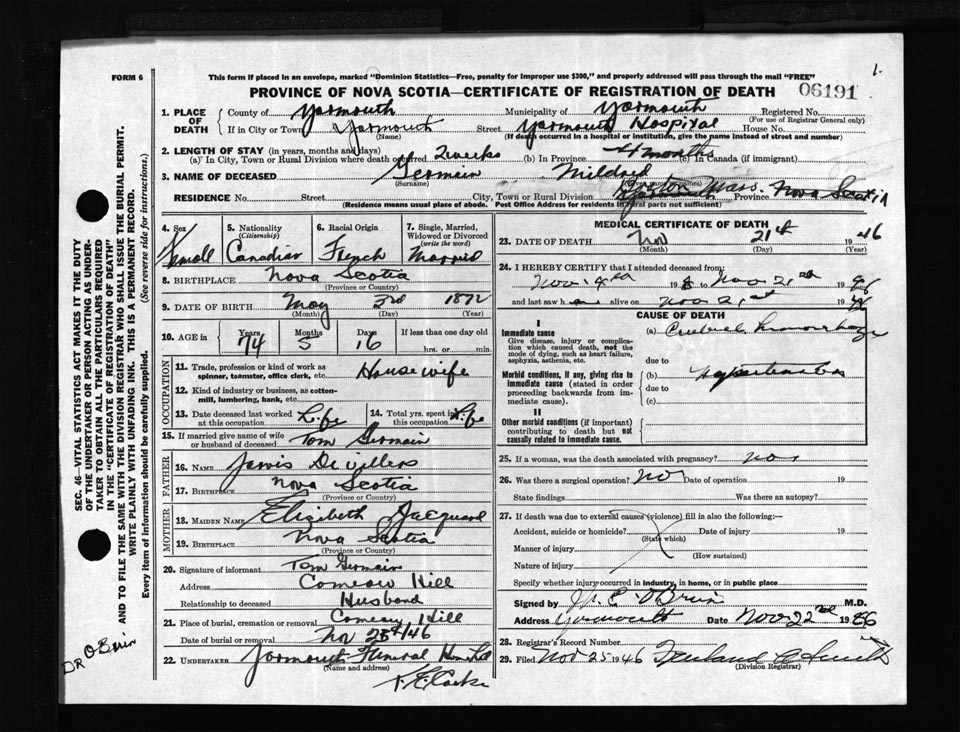 1.
FORM 6
This form if placed in an envelope, marked "Dominion Statistics—Free, penalty for improper use $300," and properly addressed will pass through the mail "FREE"
PROVINCE OF NOVA SCOTIA—CERTIFICATE OF REGISTRATION OF DEATH
06191
1. PLACE OF DEATH
County of Yarmouth Municipality of Yarmouth Registered No.
(For use of Registrar General only)
If in City or Town Yarmouth Street Yarmouth Hospital House No.
(Name) (If death occurred in a hospital or institution, give the name instead of street and number)
2. LENGTH OF STAY (in years, months and days)
(a) In City, Town or Rural Division where death occurred 2 weeks (b) In Province 4 months (c) In Canada (if immigrant)
3. NAME OF DECEASED Germain Mildred
(Surname)
RESIDENCE No. Street City, Town or Rural Division Mass. Province Nova Scotia
(Residence means usual place of abode. Post Office Address for residents in rural parts not sufficient)
4. Sex
5. Nationality (Citizenship) Canadian
6. Racial Origin French
7. Single, Married, Widowed or Divorced (write the word) Married
8. BIRTHPLACE Nova Scotia
(Province or Country)
9. DATE OF BIRTH May 1872
(Month) (Day) (Year)
10. AGE in Years 74 Months 5 Days 16 If less than one day old
hrs. or min.
OCCUPATION
11. Trade, profession or kind of work as spinner, teamster, office clerk, etc. Housewife
12. Kind of industry or business, as cotton-mill, lumbering, bank, etc.
13. Date deceased last worked at this occupation Life 14. Total yrs. spent in Life
15. If married give name of wife or husband of deceased Tom Germain
FATHER
16. NAME Jarvis
17. BIRTHPLACE Nova Scotia
(Province or Country)
MOTHER
18. MAIDEN NAME Elizibeth Jacquard
19. BIRTHPLACE Nova Scotia
(Province or Country)
20. Signature of informant Tom Germain
Address Comeau Hill
Relationship to deceased Husband
21. Place of burial, cremation or removal Hill
Date of burial or removal Nov /46
22. UNDERTAKER Yarmouth Funeral Home Ltd
(Name and address)
MEDICAL CERTIFICATE OF DEATH
23. DATE OF DEATH Nov 21st 1946
(Month) (Day) (Year)
24. I HEREBY CERTIFY that I attended deceased from:
Nov. 19 to Nov 21 19
and last saw h alive on Nov 21st 19
CAUSE OF DEATH
I
Immediate cause (a)
Give disease, injury or complication which caused death, not the mode of dying, such as heart failure, asphyxia, asthenia, etc.
due to
Morbid conditions, if any, giving rise to immediate cause (stated in order proceeding backwards from immediate cause). (b)
due to
(c)
II
Other morbid conditions (if important) contributing to death but not causally related to immediate cause.
25. If a woman, was the death associated with pregnancy? no
26. Was there a surgical operation? No Date of operation 19
State findings Was there an autopsy?
27. If death was due to external causes (violence) fill in also the following:—
Accident, suicide or homicide? Date of injury 19
(State which)
Manner of injury
(How sustained)
Nature of injury
Specify whether injury occurred in industry, in home, or in public place
Signed by O'Brien M.D.
Address Yarmouth Date Nov 22nd 19
28. Registrar's Record Number
29. Filed Nov 25 1946 Smith
(Division Registrar)
SEC. 46—VITAL STATISTICS ACT MAKES IT THE DUTY OF THE UNDERTAKER OR PERSON ACTING AS UNDERTAKER TO OBTAIN ALL THE PARTICULARS REQUIRED IN THE "CERTIFICATE OF REGISTRATION OF DEATH" AND TO FILE THE SAME WITH THE DIVISION REGISTRAR WHO SHALL ISSUE THE BURIAL PERMIT.
WRITE PLAINLY WITH UNFADING INK. THIS IS A PERMANENT RECORD.
Every item of information should be carefully supplied. (See reverse side for instructions.)
DR O'Brien